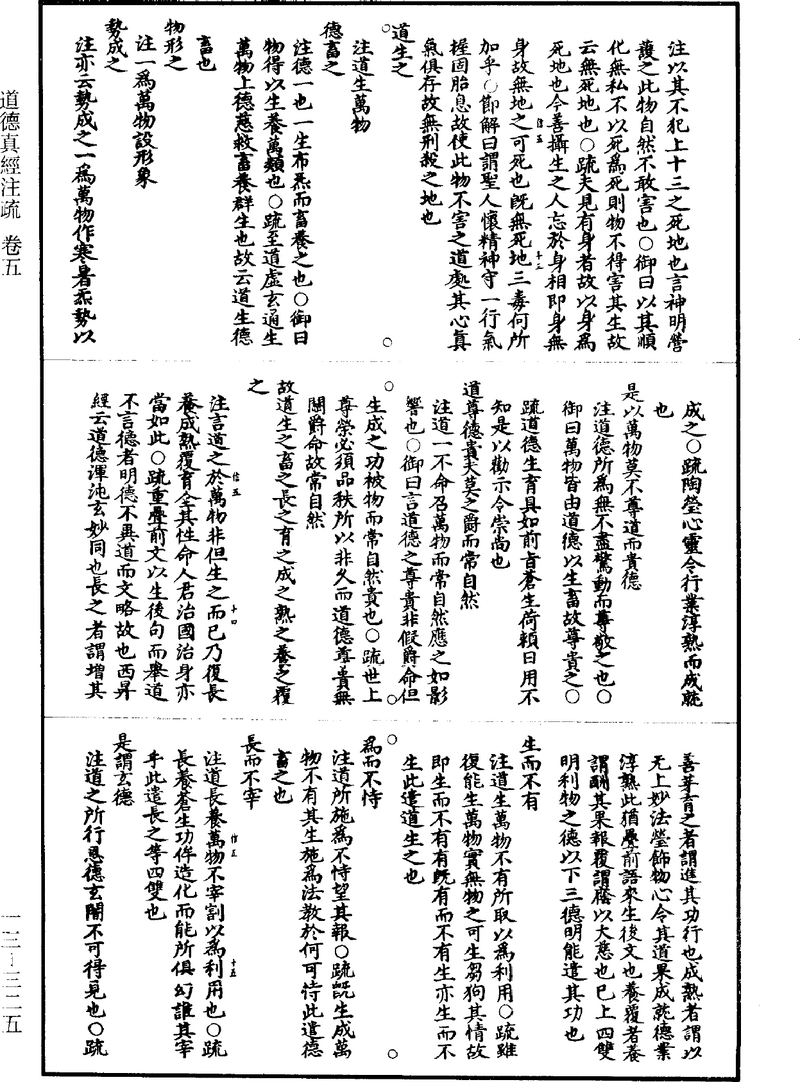 注以其不犯上十三之死地也言神明營
護之此物自然不敢害也○御曰以其順
化無私不以死為死則物不得害其生故
云無死地也○疏夫見有身者故以身為
死地也今善攝生之人忘於身相即身無
身故無地之可死也既無死地三毒何所
加乎○節解曰謂聖人懷精神守一行氣
握固胎息故使此物不害之道處其心真
氣俱存故無刑殺之地也
道生之
注道生萬物
德畜之
注德一也一生布炁而畜養之也○御曰
物得以生養萬類也○疏至道虛玄通生
萬物上德慈救畜養群生也故云道生德
畜也
物形之
注一為萬物設形象
勢成之
注亦云勢成之一為萬物作寒暑炁勢以
成之○疏陶瑩心靈令行業淳熟而成就
也
是以萬物莫不尊道而貴德
注道德所為無不盡驚動而尊敬之也○
御曰萬物皆由道德以生畜故尊貴之○
疏道德生育具如前旨蒼生荷賴日用不
知是以勸示令崇尚也
道尊德貴夫莫之爵而常自然
注道一不命召萬物而常自然應之如影
響也○御曰言道德之尊貴非假爵命但
生成之功被物而常自然貴也○疏世上
尊榮必須品秩所以非久而道德尊貴無
關爵命故常自然
故道生之畜之長之育之成之熟之養之覆
之
注言道之於萬物非但生之而已乃復長
養成熟覆育全其性命人君治國治身亦
當如此○疏重疊前文以生後句而舉道
不言德者明德不異道而文略故也西昇
經云道德渾沌玄妙同也長之者謂增其
善芽育之者謂進其功行也成熟者謂以
无上妙法瑩飾物心令其道果成就德業
淳熟此猶疊前語來生後文也養覆者養
謂酬其果報覆謂廕以大慈也已上四雙
明利物之德以下三德明能遣其功也
生而不有
注道生萬物不有所取以為利用○疏雖
復能生萬物實無物之可生芻狗其情故
即生而不有有既有而不有生亦生而不
生此遣道生之也
為而不恃
注道所施為不恃望其報○疏既生成萬
物不有其生施為法教於何可恃此遣德
畜之也
長而不宰
注道長養萬物不宰割以為利用也○疏
長養蒼生功侔造化而能所俱幻誰其宰
乎此遣長之等四雙也
是謂玄德
注道之所行恩德玄闇不可得見也○疏
道德真經注疏 卷五
一三—三二五